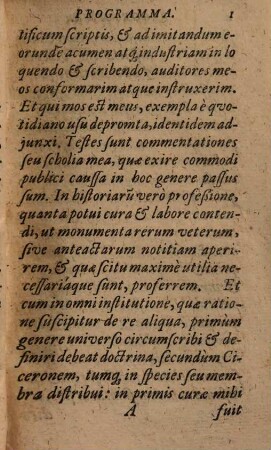 PROGRAMMA. 1
tificum scriptis, & ad imitandum e-
orundē acumen atq́; industriam in lo
quendo & scribendo, auditores me-
os conformarim atque instruxerim.
Et qui mos est meus, exempla è quo-
tidiano usu depromta, identidem ad-
junxi. Testes sunt commentationes
seu scholia mea, quæ exire commodi
publici caussa in hoc genere passus
sum. In historiarū verò professione,
quanta potui cura & labore conten-
di, ut monumenta rerum veterum,
sive anteactarum notitiam aperi-
rem, & quæ scitu maximè utilia ne-
cessariaque sunt, proferrem. Et
cum in omni institutione, quæ ratio-
ne suscipitur de re aliqua, primùm
genere universo circumscribi & de-
finiri debeat doctrina, secundùm Ci-
ceronem, tumq́; in species seu mem-
bra distribui: in primis curæ mihi
A fuit